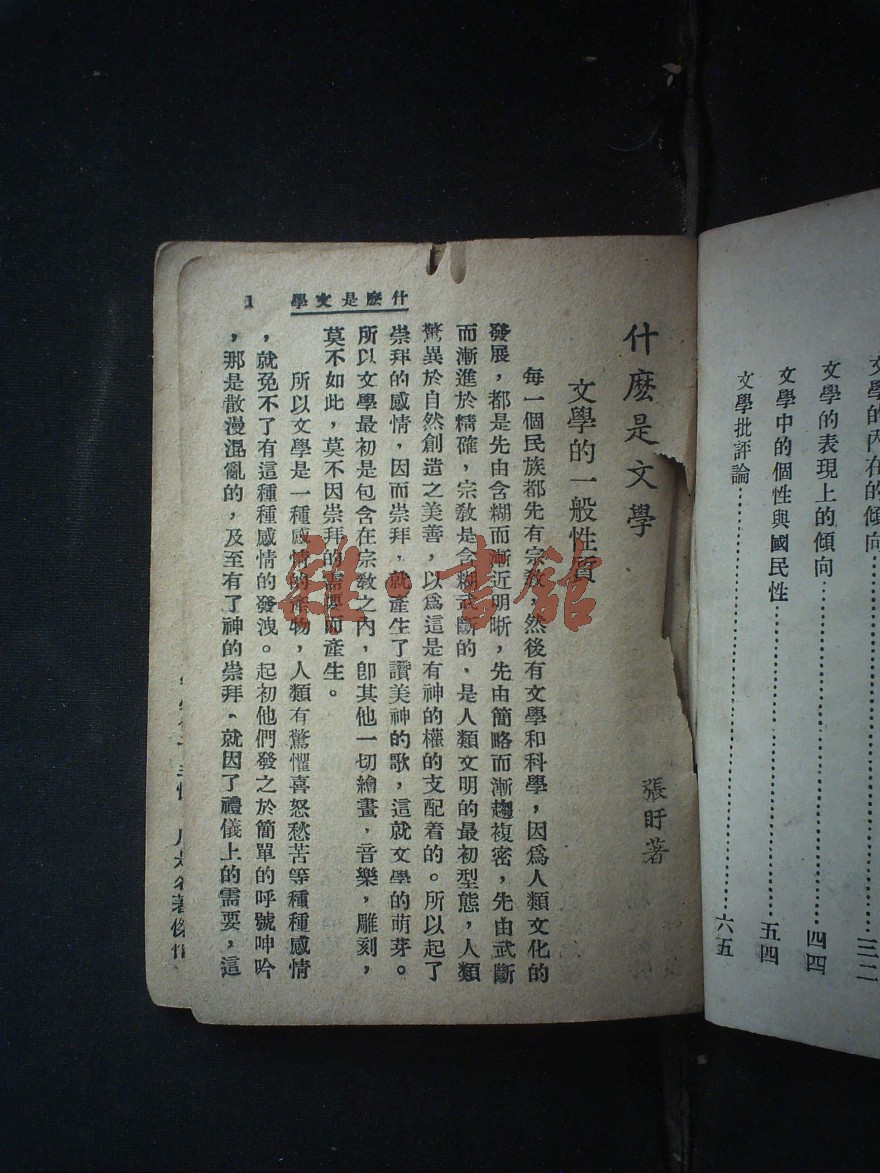 文學的內在的傾向……三二
文學的表現上的傾向……四四
文學中的個性與國民性……五四
文學批評論……六五
什麽是文學
張盱著
文學的一般性質
每一個民族都先有宗教，然後有文學和科學，因爲人類文化的
發展，都是先由含糊而漸近明晰，先由簡略而漸趨複密，先由武斷
而漸進於精確，宗教是含糊武斷的，是人類文明的最初型態，人類
驚異於自然創造之美善，以爲這是有神的權的支配着的。所以起了
崇拜的感情，因而崇拜，就產生了讚美神的歌，這就文學的萌芽。
所以文學最初是包含在宗教之內，卽其他一切繪畫，音樂，雕刻，
莫不如此，莫不因崇拜的需要而產生。
所以文學是一種感情的產物，人類有驚懼喜怒愁苦等種種感情
，就免不了有這種種感情的發洩。起初他們發之於簡單的呼號呻吟
，那是散漫混亂的，及至有了神的崇拜，就因了禮儀上的需要，這
什麽是文學 1
雜·書舘